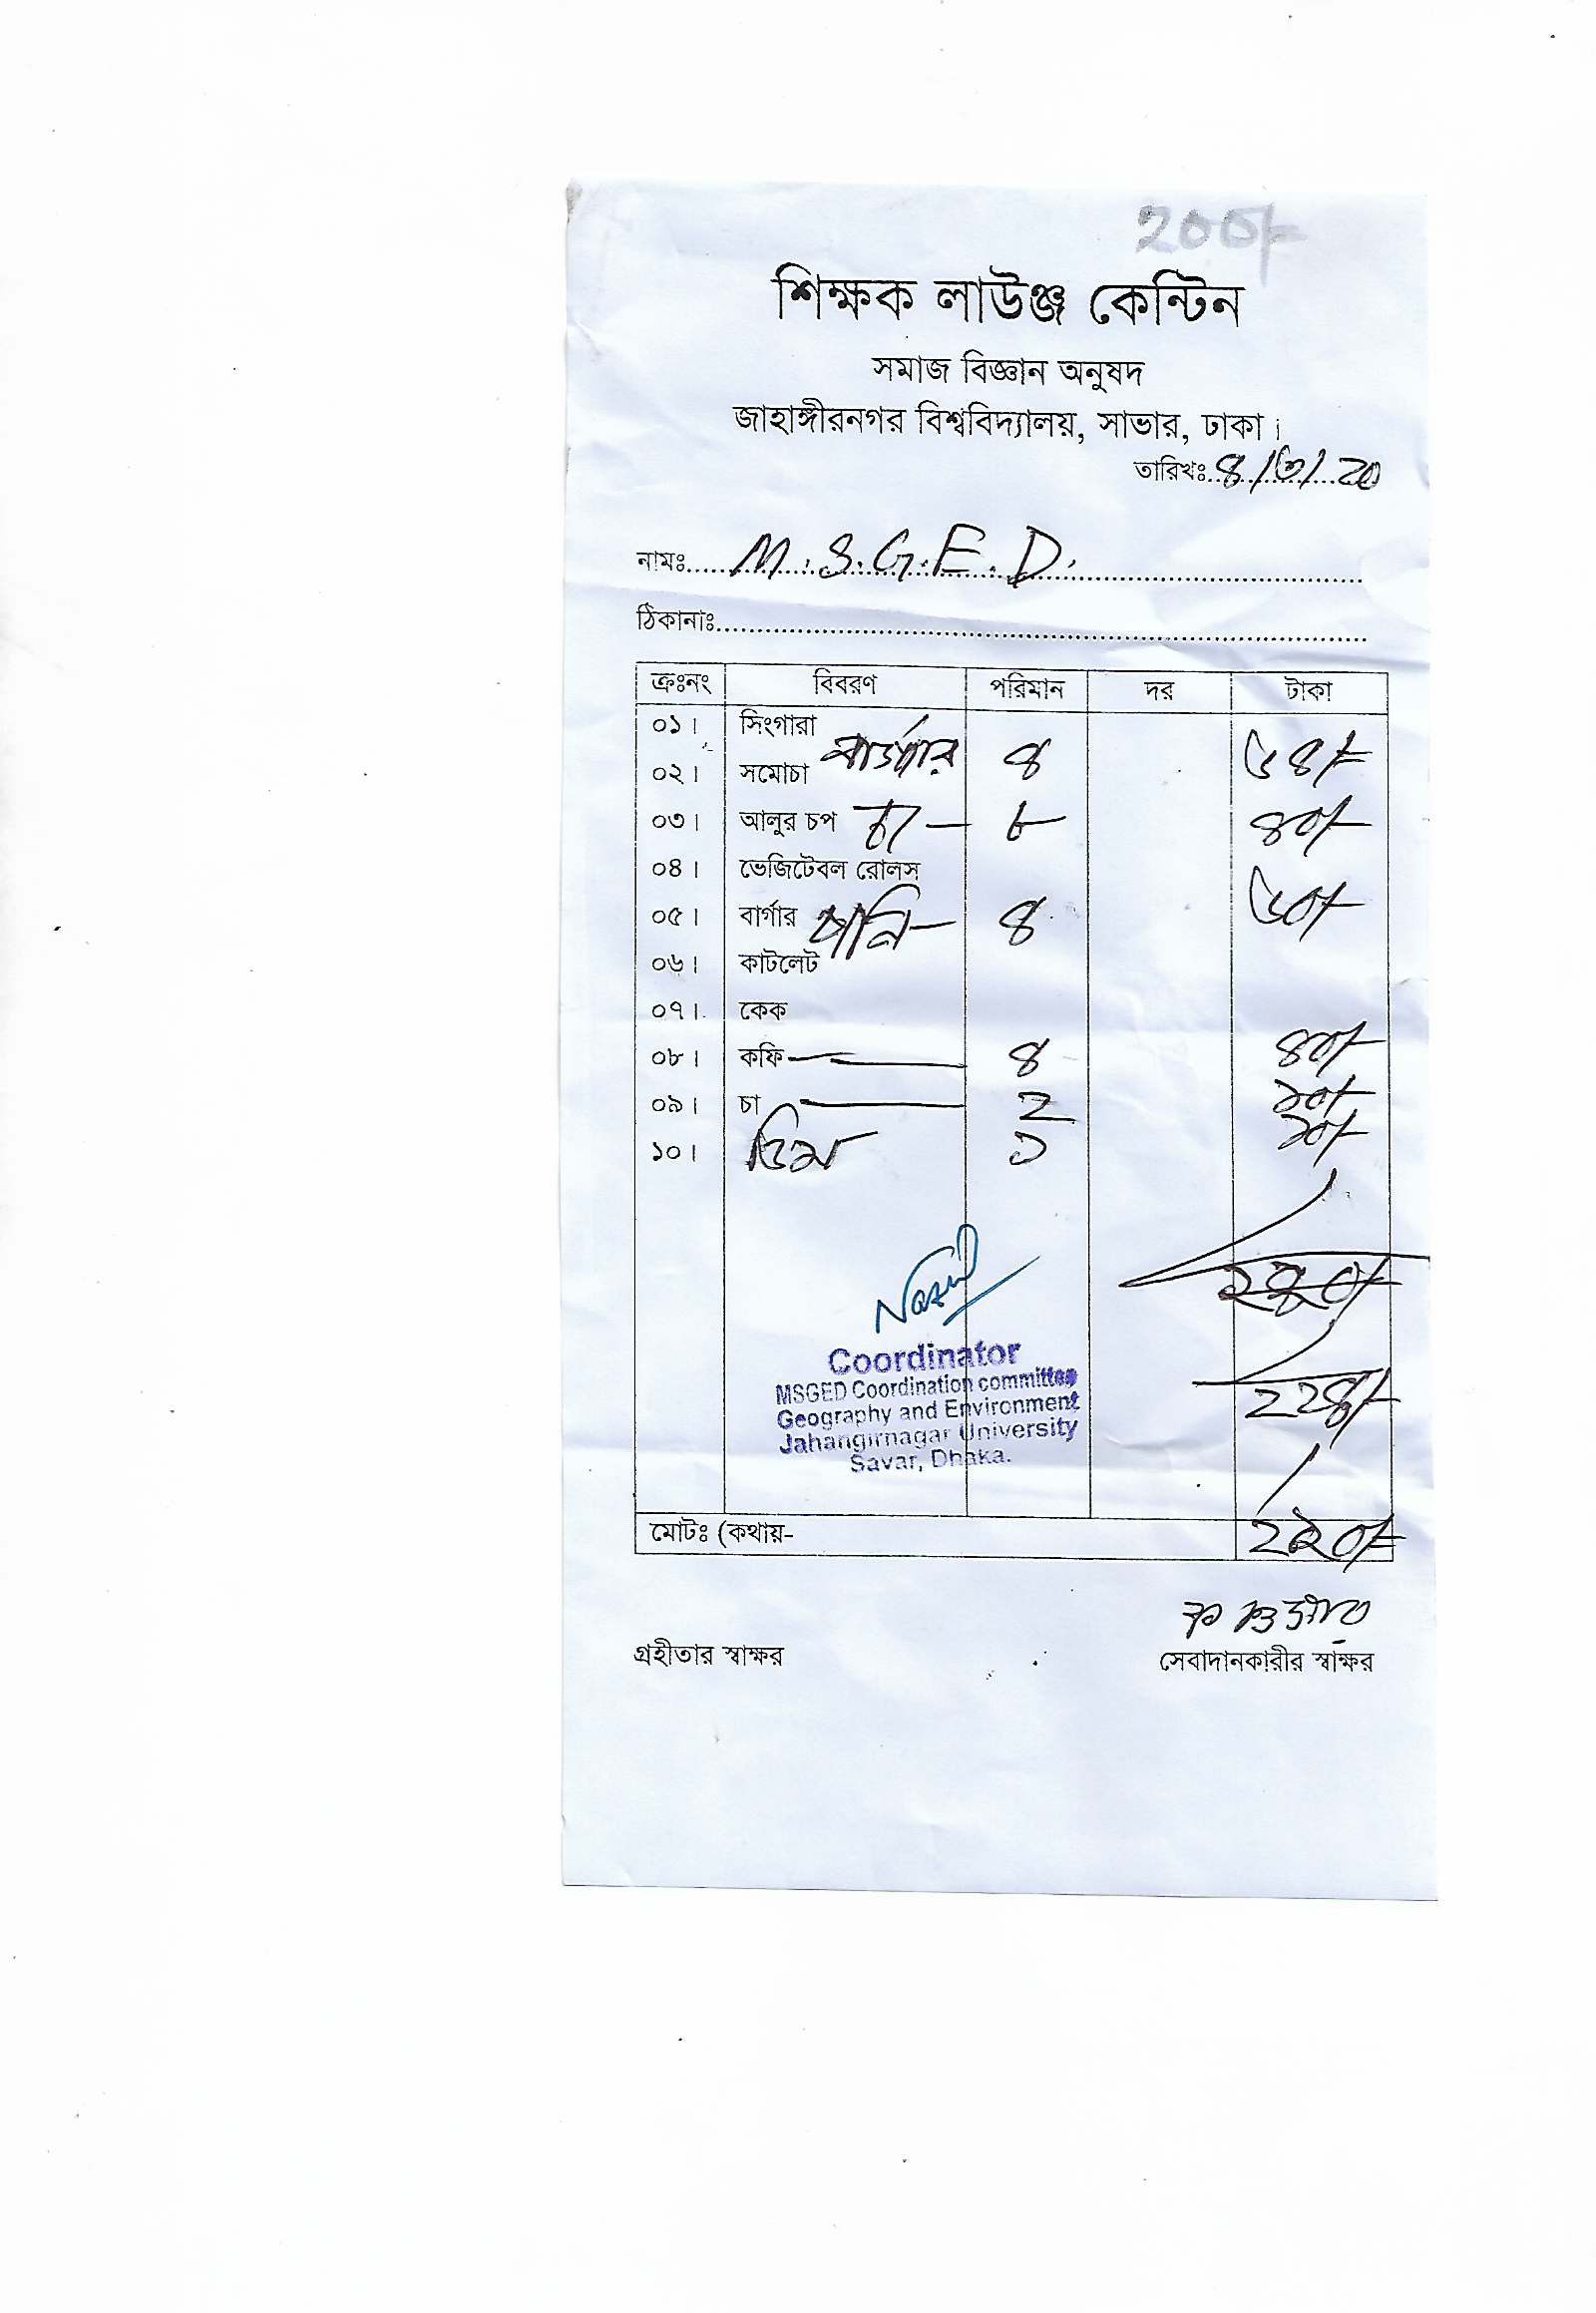 ২০০/-
শিক্ষক লাউঞ্জ কেন্টিন
সমাজ বিজ্ঞান অনুষদ
জাহাঙ্গীরনগর বিশ্ববিদ্যালয়, সাভার, ঢাকা।
তারিখঃ ৪/৩/২০
নামঃ M.S.G.E.D.
ঠিকানাঃ
ক্রঃনং বিবরণ পরিমান দর টাকা
০১। সিংগারা
বার্গার ৪ ৬৪/-
০২। সমোচা
০৩। আলুর চপ চা — ৮ ৪০/-
০৪। ভেজিটেবল রোলস
০৫। বার্গার পানি — ৪ ৬০/-
০৬। কাটলেট
০৭। কেক
০৮। কফি — ৪ ৪০/-
০৯। চা — ২ ১০/-
১০। ডিম ১ ১০/-
Coordinator
MSGED Coordination committee
Geography and Environment
Jahangirnagar University
Savar, Dhaka.
২২৪/-
মোটঃ (কথায়- ২২০/-
গ্রহীতার স্বাক্ষর সেবাদানকারীর স্বাক্ষর